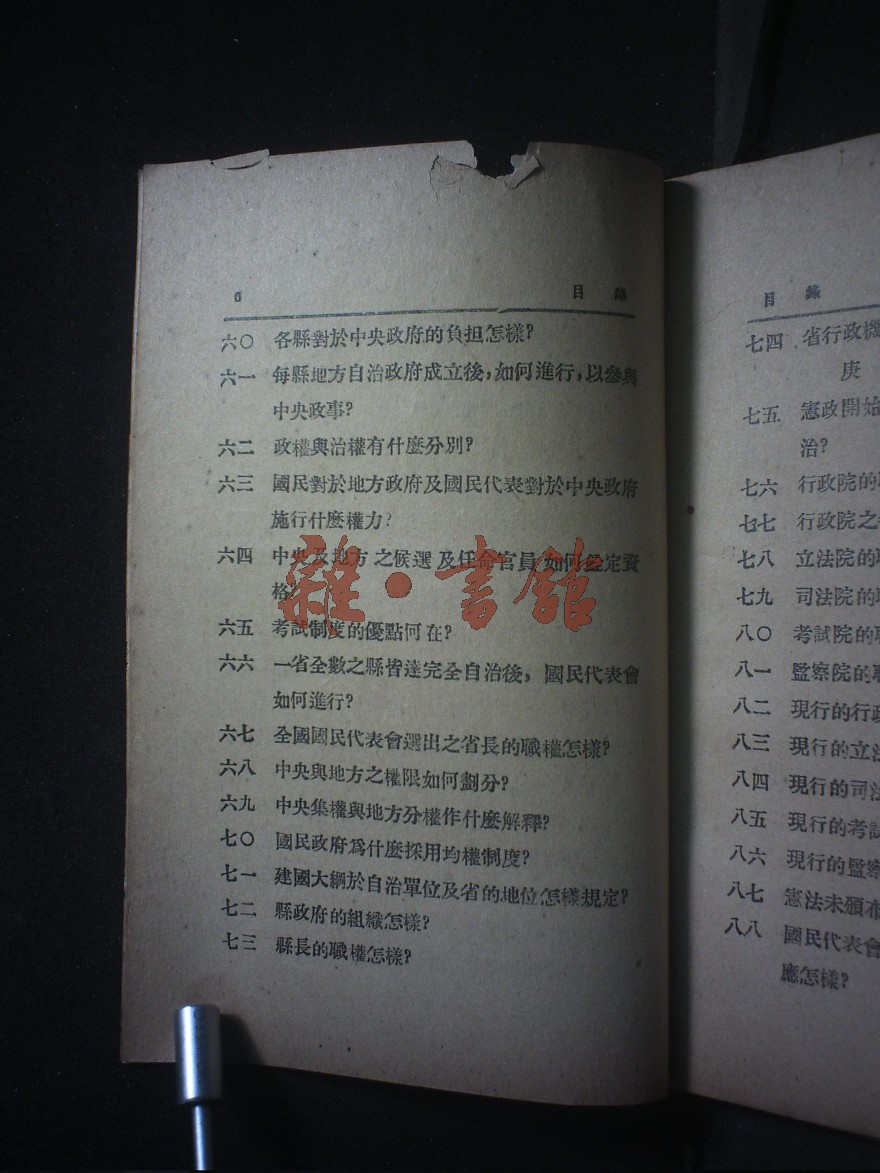 6 目錄
六〇 各縣對於中央政府的負担怎樣?
六一 每縣地方自治政府成立後,如何進行,以參與
中央政事?
六二 政權與治權有什麼分別?
六三 國民對於地方政府及國民代表對於中央政府
施行什麼權力?
六四 中央及地方之候選及任命官員如何銓定資
格?
六五 考試制度的優點何在?
六六 一省全數之縣皆達完全自治後,國民代表會
如何進行?
六七 全國國民代表會選出之省長的職權怎樣?
六八 中央與地方之權限如何劃分?
六九 中央集權與地方分權作什麼解釋?
七〇 國民政府爲什麼採用均權制度?
七一 建國大綱於自治單位及省的地位怎樣規定?
七二 縣政府的組織怎樣?
七三 縣長的職權怎樣?
雜·書館
目錄
七四 省行政機
庚
七五 憲政開始
治?
七六 行政院的
七七 行政院之
七八 立法院的
七九 司法院的
八〇 考試院的
八一 監察院的
八二 現行的行政
八三 現行的立法
八四 現行的司法
八五 現行的考試
八六 現行的監察
八七 憲法未頒布
八八 國民代表會
應怎樣?